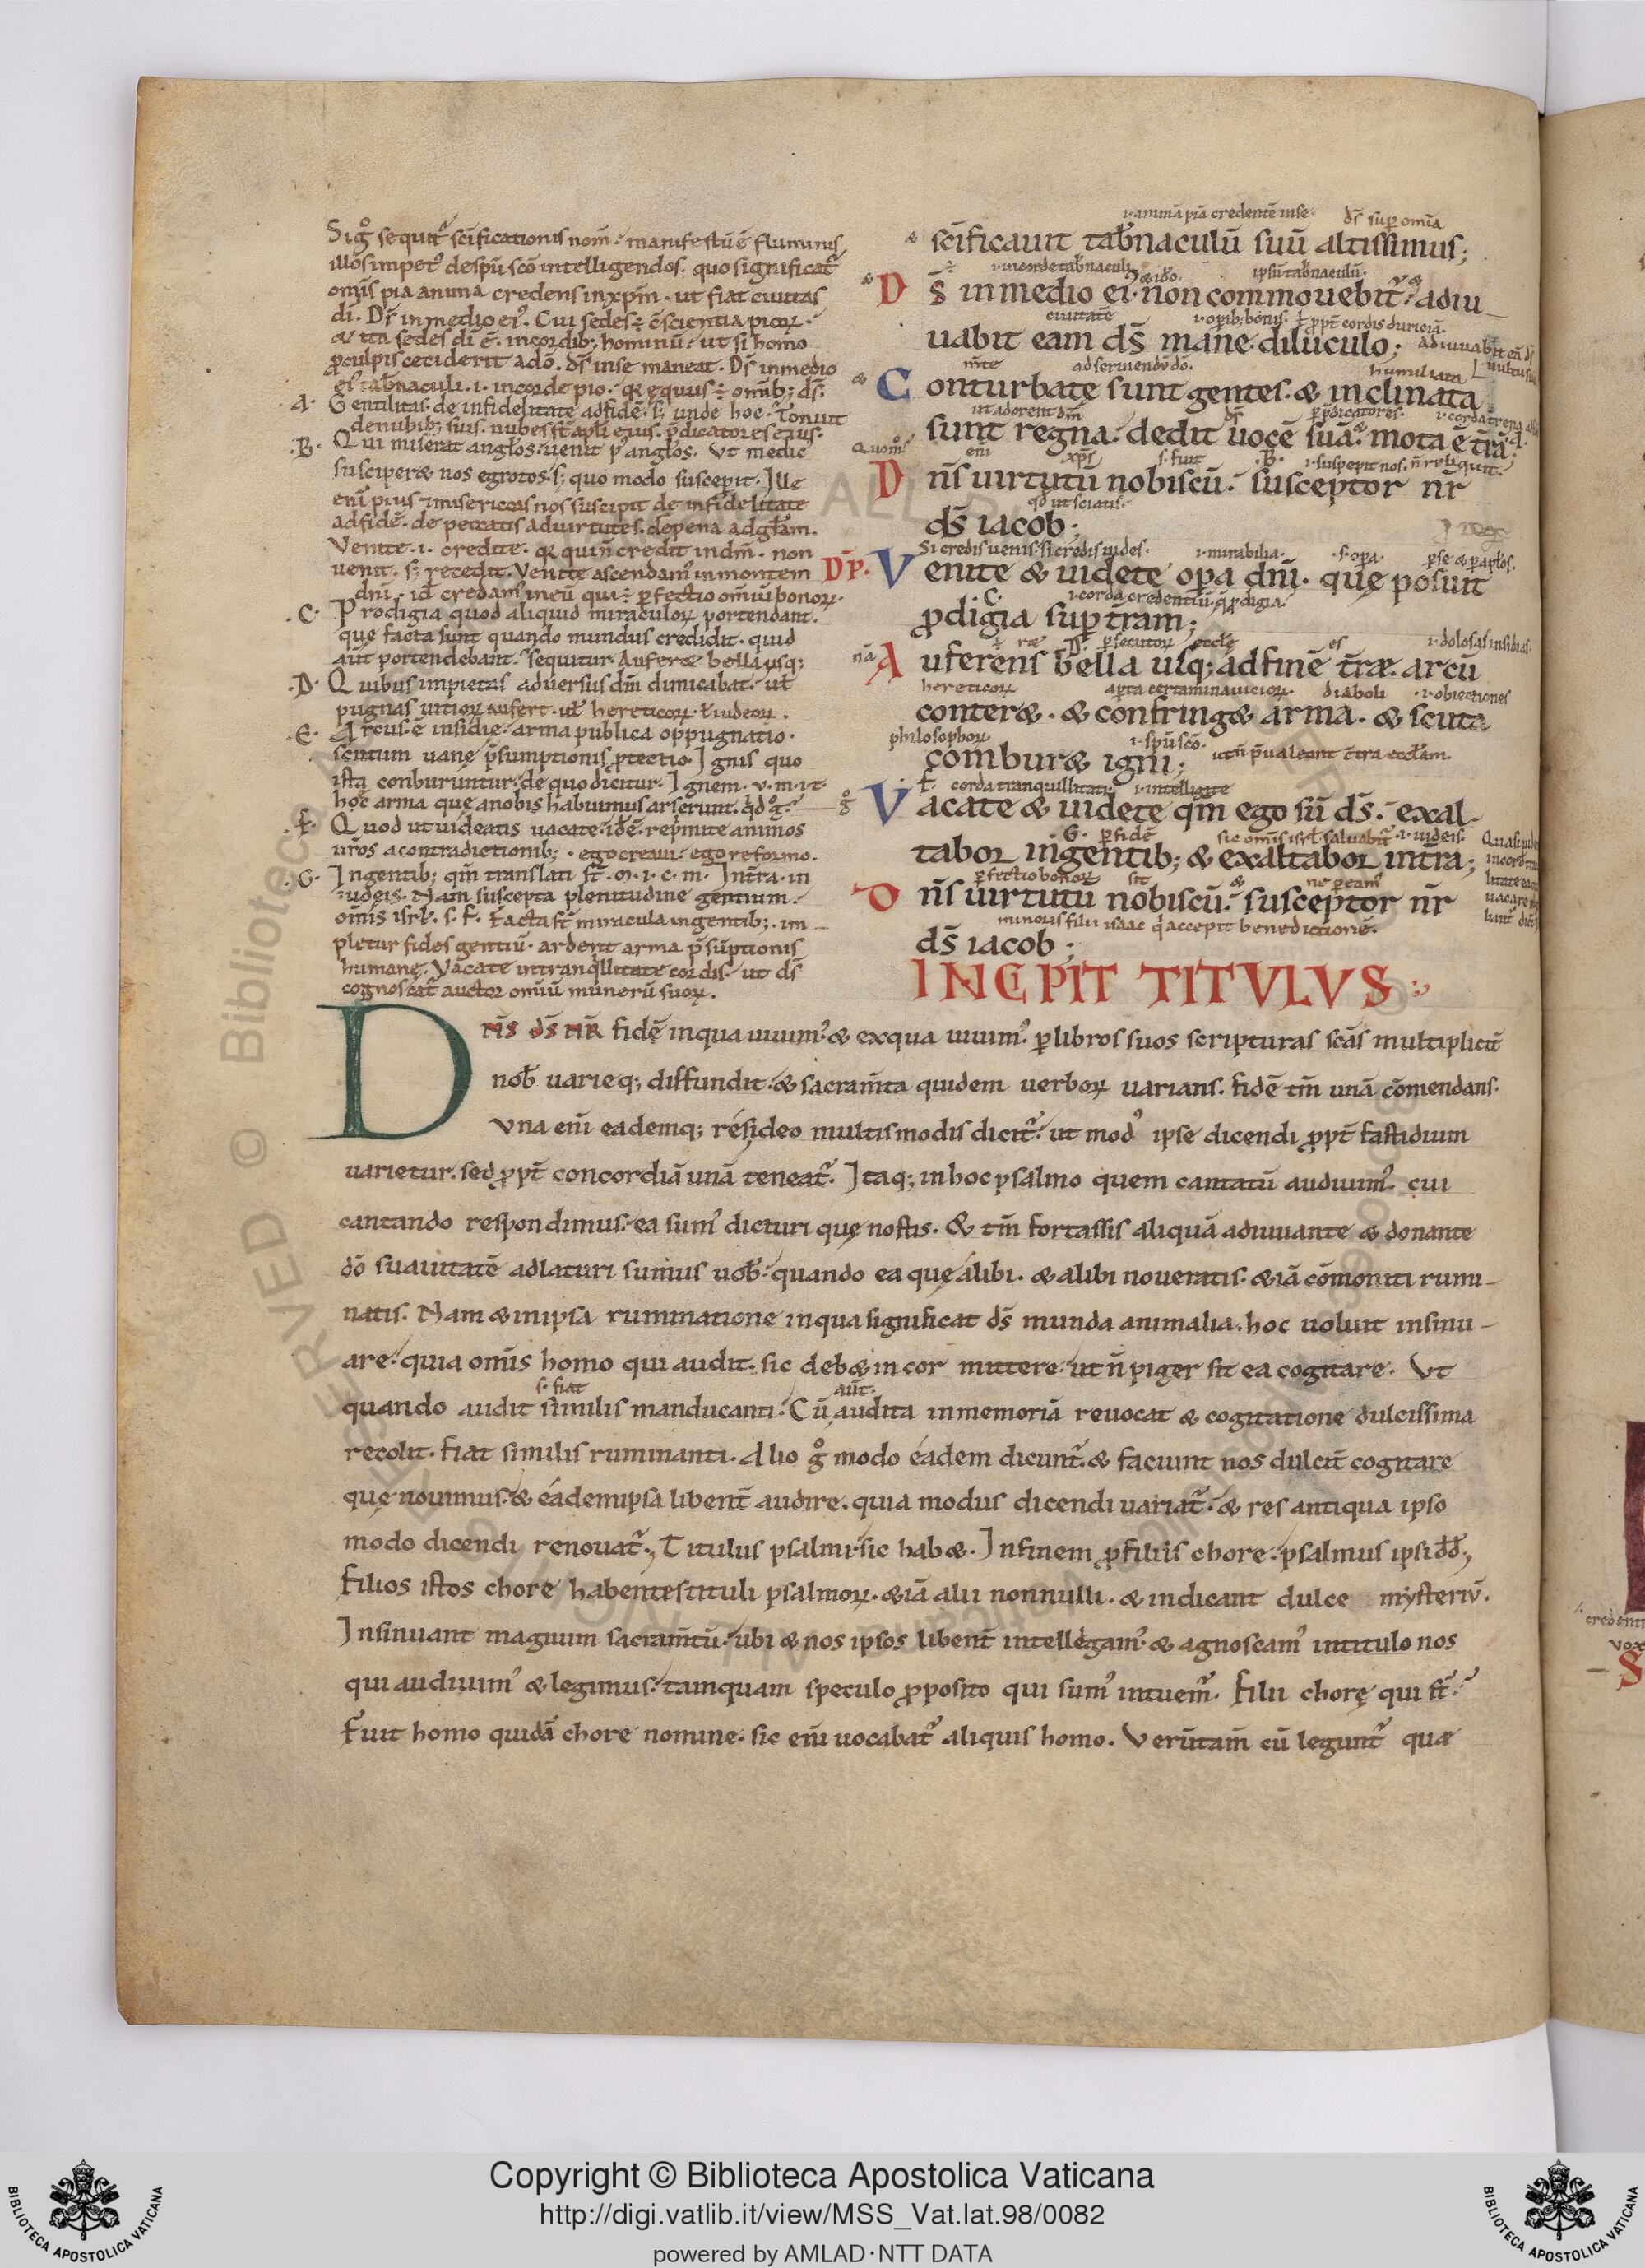 Sig̊ sequit᷑ sc̄ificationis nom̄. manifestū ē fluminis
illos impet᷒ de sp̄u sc̄o intelligendos. quo significat᷑
om̄is pia anima credens in xp̄m. ut fiat ciuitas
di. Ds̄ in medio ei᷒. Cui sedes ÷ c̄scientia pioꝝ.
& ita sedes dī ē. in cordib; hominū. ut si homo
ꝓ culpis ceciderit a dō. ds̄ in se maneat. Ds̄ in medio
ei᷒ tab̄naculi .i. in corde pio. qꝛ ęquus ÷ om̄ib; ds̄.
.A. Gentilitas de infidelitate ad fidē. s; unde hoc. Tonuit
de nubib; suis. nubes st̄ apl̄i eius. p̄dicatores eius.
.B. Qui miserat angl̄os. uenit ꝑ angl̄os. Vt medic᷒
susciperæ nos egrotos. s; quo modo suscepit. Ille
eni pius & misericors nos suscipit de infidelitate
ad fidē. de peccatis ad uirtutes. de pena ad gl̄am.
Venite .i. credite. qꝛ qui n̄ credit in dm̄. non
uenit. s; recedit. Venite ascendam᷒ in montem
dn̄i. id credam᷒ in eū qui ÷ ꝑfectio om̄iū bonoꝝ.
.C. Prodigia quod aliquid miraculoꝝ portendant.
quę facta sunt quando mundus credidit. quid
aut̄ portendebant. sequitur. Auferæ bella usq;
.D. Quibus impietas aduersus dm̄ dimicabat. ul̄
pugnas uitioꝝ aufert. ul̄ hereticoꝝ. ł iudeoꝝ.
.E. Arcus ē insidię. arma publica oppugnatio.
scutum uanę p̄sumptionis ꝓtectio. Ignis quo
ista conburuntur. de quo dicitur. Ignem. v. m. i. t.
hoc arma quę a nobis habuimus arserunt. qd̄ g̊.
.F. Quod ut uideatis uacate. id ē. rep̄mite animos
ur̄os a contradictionib;. ego creaui. ego reformo.
.G. In gentib; qm̄ translati st̄. in. i. c. m. In tr̄a. in
iudeis. Nam suscepta plenitudine gentium.
om̄is isrl̄. s. f. Facta st̄ miracula in gentib;. im-
pletur fides gentiū. ardent arma p̄sūptionis
humanę. Vacate in tranq̄llitate cordis. ut ds̄
cognoscat᷑ auctor om̄iū munerū suoꝝ.
.i. animā piā credentē in se. ds̄ sup om̄ia
& sc̄ificauit tab̄naculū suū altissimus;
.i. in corde tab̄naculi. & ido. ipsū tab̄naculū.
Ds̄ in medio ei᷒ non commouebit᷑. adiu-
ciuitatē .i. oꝑib; bonis. ł ꝓpt̄ cordis duriciā.
uabit eam ds̄ mane diluculo; adiuuabit eā ds̄ uultu suo
m̄te ad seruiendū dō. humiliata
& Conturbate sunt gentes. & inclinata
ut adorent dm̄ ds̄ p̄dicatores. .i. corda
sunt regna. dedit uocē suā. mota ē tr̄a;
Quom̊ eni xp̄s s. fuit .B. .i. suscepit nos. n̄ reliquit.
Dn̄s uirtutū nobiscū. susceptor nr̄
qd̄ ut sciatis.
ds̄ iacob;
Si credis uenis. si credis uides. .i. mirabilia. .s. opa. ꝑ se & ꝑ apl̄os.
DP̄. Venite & uidete opa dn̄i. quę posuit
.C. .i. corda credentiū. q̄ ꝓdigia.
ꝓdigia sup tr̄am;
ræ .D. ꝑsecutoꝝ eccl̄ę es .i. dolosas insidias
nā Auferens bella usq; ad finē tr̄æ. arcū
hereticoꝝ aꝑta certamina uicioꝝ. diaboli .i. obiectiones
conteræ. & confringæ arma. & scuta
philosophoꝝ .i. sp̄u sc̄o. ut n̄ p̄ualeant c̄tra eccl̄am.
comburæ igni;
.F. corda tranquillitati .i. intelligite
g̊ Vacate & uidete qm̄ ego sū ds̄. exal-
.G. ꝑ fidē sic om̄is isrl̄ saluabit᷑ .i. iudeis.
tabor in gentib; & exaltabor in tr̄a;
ꝑfectio bonoꝝ sit & ne ꝑeam᷒
Dn̄s uirtutū nobiscū. susceptor nr̄
minoris filii isaac q̄ accepit benedictionē.
ds̄ iacob;
INCPIT TITVLVS
Dn̄s ds̄ nr̄ fidē in qua uiuim᷒ & ex qua uiuim᷒. ꝑ libros suos scripturas scās multiplicit̄
nob̄ uarieq; diffundit. & sacram̄ta quidem uerboꝝ uarians. fidē tm̄ unā cōmendans.
Vna eni eademq; res ideo multis modis dicit᷑. ut mod᷒ ipse dicendi ꝓpt̄ fastidium
uarietur. sed ꝓpt̄ concordiā unā teneat᷑. Itaq; in hoc psalmo quem cantatū audiuim᷒. cui
cantando respondimus. ea sum᷒ dicturi quę nostis. & tm̄ fortassis aliquā adiuuante & donante
dō suauitatē adlaturi sumus uob̄. quando ea quę alibi. & alibi noueratis. & iā cōmoniti rumi-
natis. Nam & in ipsa ruminatione in qua significat ds̄ munda animalia. hoc uoluit insinu-
are. quia om̄is homo qui audit. sic debæ in cor mittere. ut n̄ piger sit ea cogitare. Vt
s. fiat aut̄.
quando audit similis manducanti. Cū audita in memoriā reuocat & cogitatione dulcissima
recolit. fiat similis ruminanti. Alio g̊ modo eadem dicunt᷑. & faciunt nos dulcit̄ cogitare
quę nouimus. & eadem ipsa libent̄ audire. quia modus dicendi uariat᷑. & res antiqua ipso
modo dicendi renouat᷑. Titulus psalmi sic habæ. In finem ꝓ filiis chore. psalmus ipsi dd̄.
Filios istos chore habentes tituli psalmoꝝ. & iā alii nonnulli. & indicant dulce mysteriū.
Insinuant magnum sacram̄tū. ubi & nos ipsos libent̄ intellegam᷒ & agnoscam᷒ in titulo nos
qui audiuim᷒ & legimus. tamquam speculo ꝓposito qui sum᷒ intuem᷑. Filii chorę qui st̄.
Fuit homo quidā chore nomine. sic eni uocabat᷑ aliquis homo. Verūtam̄ cū legunt᷑ quæ
Copyright © Biblioteca Apostolica Vaticana
http://digi.vatlib.it/view/MSS_Vat.lat.98/0082
powered by AMLAD·NTT DATA
BIBLIOTECA APOSTOLICA VATICANA
BIBLIOTECA APOSTOLICA VATICANA